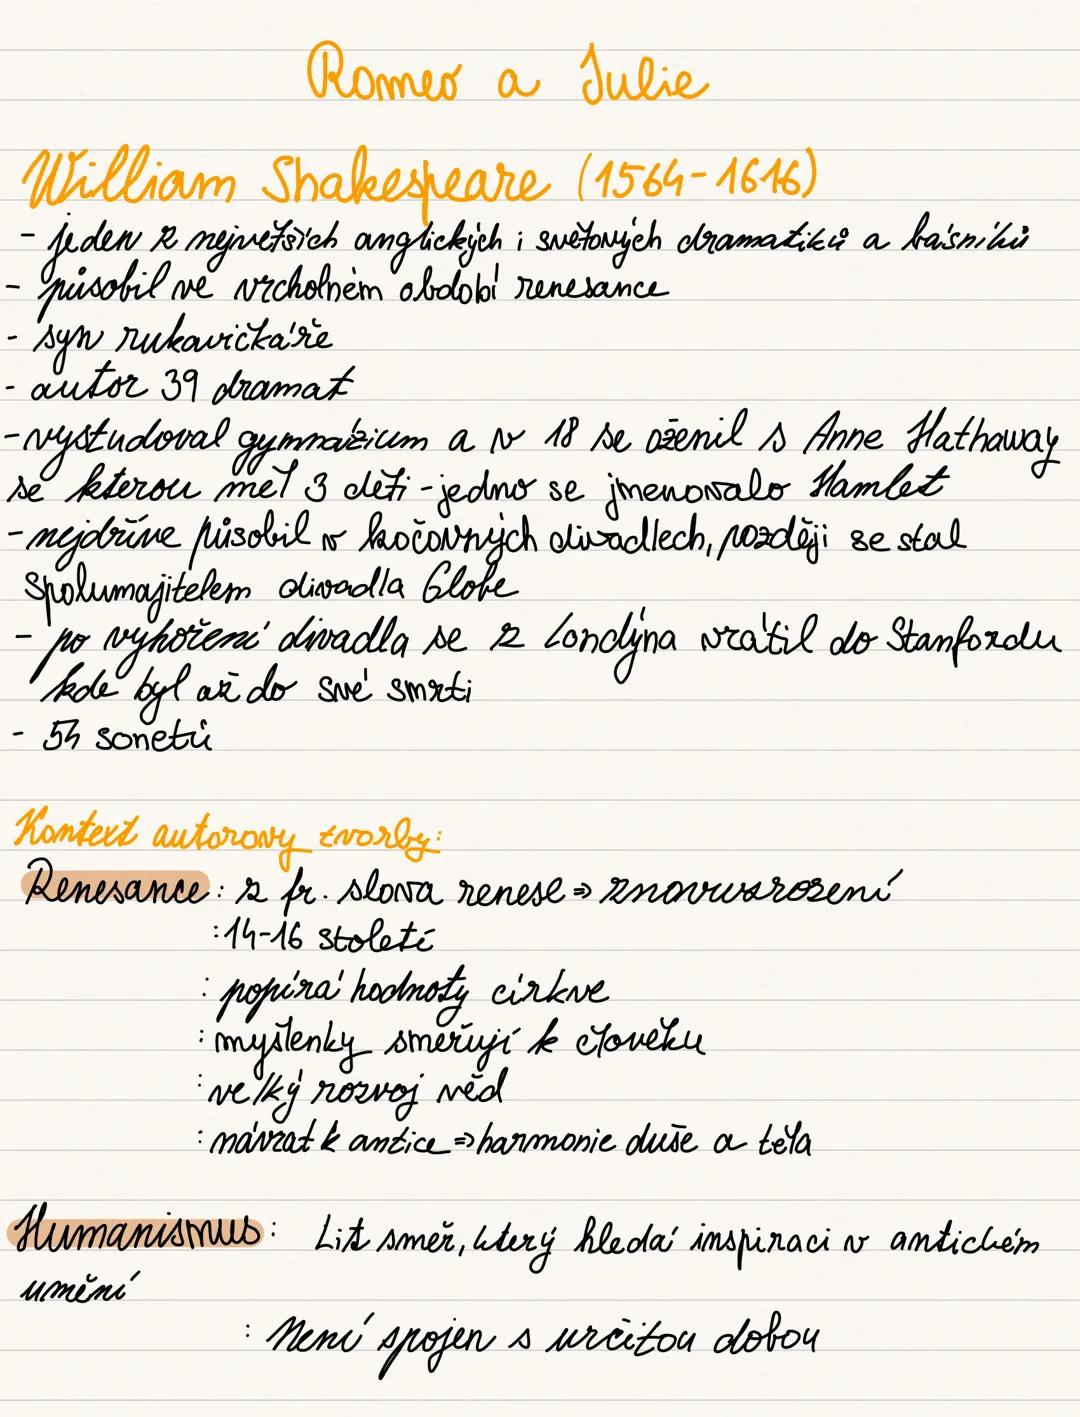 Romeo a Julie
William Shakespeare (1564-1616)
- jeden z největších anglických i světových dramatiků a básníků
- působil ve vrcholném období renesance
- syn rukavičkáře
- autor 39 dramat
- vystudoval gymnázium a v 18 se oženil s Anne Hathaway
se kterou měl 3 děti - jedno se jmenovalo Hamlet
- nejdříve působil v kočovných divadlech, později se stal
spolumajitelem divadla Globe
- po vyhoření divadla se z Londýna vrátil do Stanfordu
kde byl až do své smrti
- 54 sonetů
Kontext autorovy tvorby:
Renesance : z fr. slova renese => znovuzrození
: 14-16 století
: popírá hodnoty církve
: myšlenky směřují k člověku
: velký rozvoj věd
: návrat k antice => harmonie duše a těla
Humanismus : Lit směr, který hledá inspiraci v antickém
umění
: Není spojen s určitou dobou